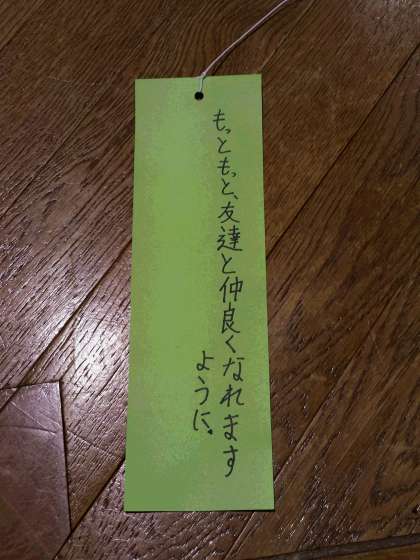 もっともっと、友達と仲良くなれます
ように。